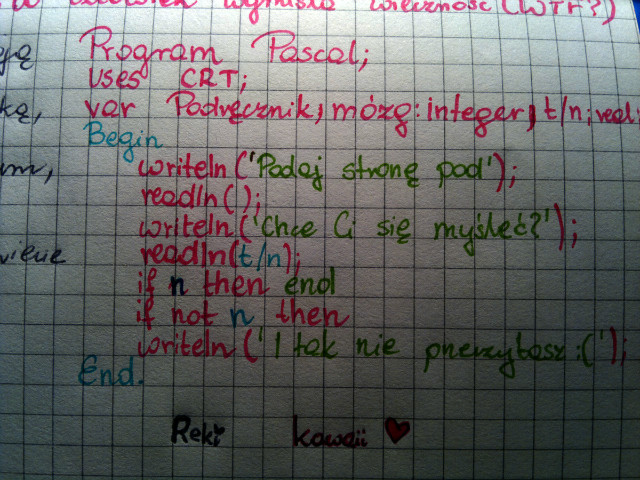 człowiek wymyślił wieczność (WTF?)
Program Pascal;
uses CRT;
ką, var Podręcznik, mózg: integer, t/n; real;
Begin
writeln ('Podaj stronę pod');
readln ();
writeln ('Chce Ci się myśleć?');
readln (t/n);
if n then end
if not n then
writeln ('I tak nie przeczytasz :(');
End.
Reki kawaii ♥